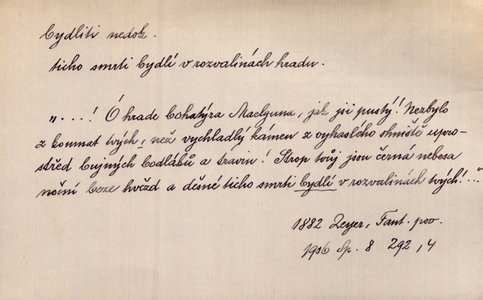 bydliti nedok.
ticho smrti bydlí v rozvalinách hradu.
„...! Ó hrade bohatýra Maelguna, jak jsi pustý! Nezbylo
z komnat tvých, než vychladlý kámen z vyhaslého ohniště upro-
střed bujných bodláků a travin! Strop tvůj jsou černá nebesa
noční beze hvězd a děsné ticho smrti bydlí v rozvalinách tvých! ..."
1882 Zeyer, Fant. pov.
1906 Sp. 8 292, 4